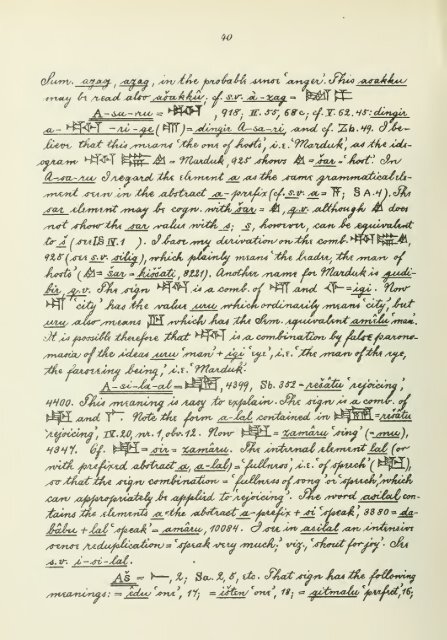 40
Sum. azag, azag, in the probable sense 'anger'. This asakku
may be read also ašakku; cf. s.v. à-zag =
A-sa-ru = , 918; II. 55, 68c; cf. V. 62. 45: dingir
a- -ri-ge ( ) = dingir A-sa-ri, and cf. Zb. 49. I be-
lieve that this means 'the one of hosts', i.e. 'Marduk', as the ide-
ogram = Marduk, 925 shows = šar = 'host'. In
A-sa-ru I regard the element a as the same grammatical ele-
ment seen in the abstract a-prefix (cf. s.v. a = ; § A. 4). The
sar element may be cogn. with šar = , q.v. although does
not show the sar value with s; s, however, can be equivalent
to š (see IV. 1). I base my derivation on the comb. ,
925 (see s.v. silig), which plainly means 'the leader, the man of
hosts' ( = šar = kiššati, 8221). Another name for Marduk is gudi-
bir, q.v. The sign is a comb. of and = igi. Now
'city' has the value uru which ordinarily means 'city', but
uru also means which has the Sem. equivalent amêlu 'man.'
It is possible therefore, that is a combination by false parono-
masia of the ideas uru 'man' + igi 'eye', i.e. 'the man of the eye,
the foreseeing being', i.e. 'Marduk.'
A-si-la-al = , 4399, Sb. 352 = rešâtu 'rejoicing',
4400. This meaning is easy to explain. The sign is a comb. of
and . Note the form a-lal contained in = rešâtu
'rejoicing', IV. 20, nr. 1, obv. 12. Now = zamâru 'sing' (= mu),
4347. Cf. = sir = zamâru. The internal element lal (or
with prefixed abstract a, a-lal) = 'fullness', i.e. of speech' ( ),
so that the sign combination = 'fullness of song' or 'speech', which
can appropriately be applied to 'rejoicing'. The word asilal con-
tains the elements a = the abstract a-prefix + si 'speak', 3380 = da-
bâbu + lal 'speak' = amâru, 10084. I see in asilal an intensive
sense reduplication = 'speak very much', viz., 'shout for joy'. See
s.v. i-si-lal.
Aš = , 2; Sa. 2, 8, etc. That sign has the following
meanings: = êdu 'one', 17; = išten 'one', 18; = gitmalu 'perfect', 16;